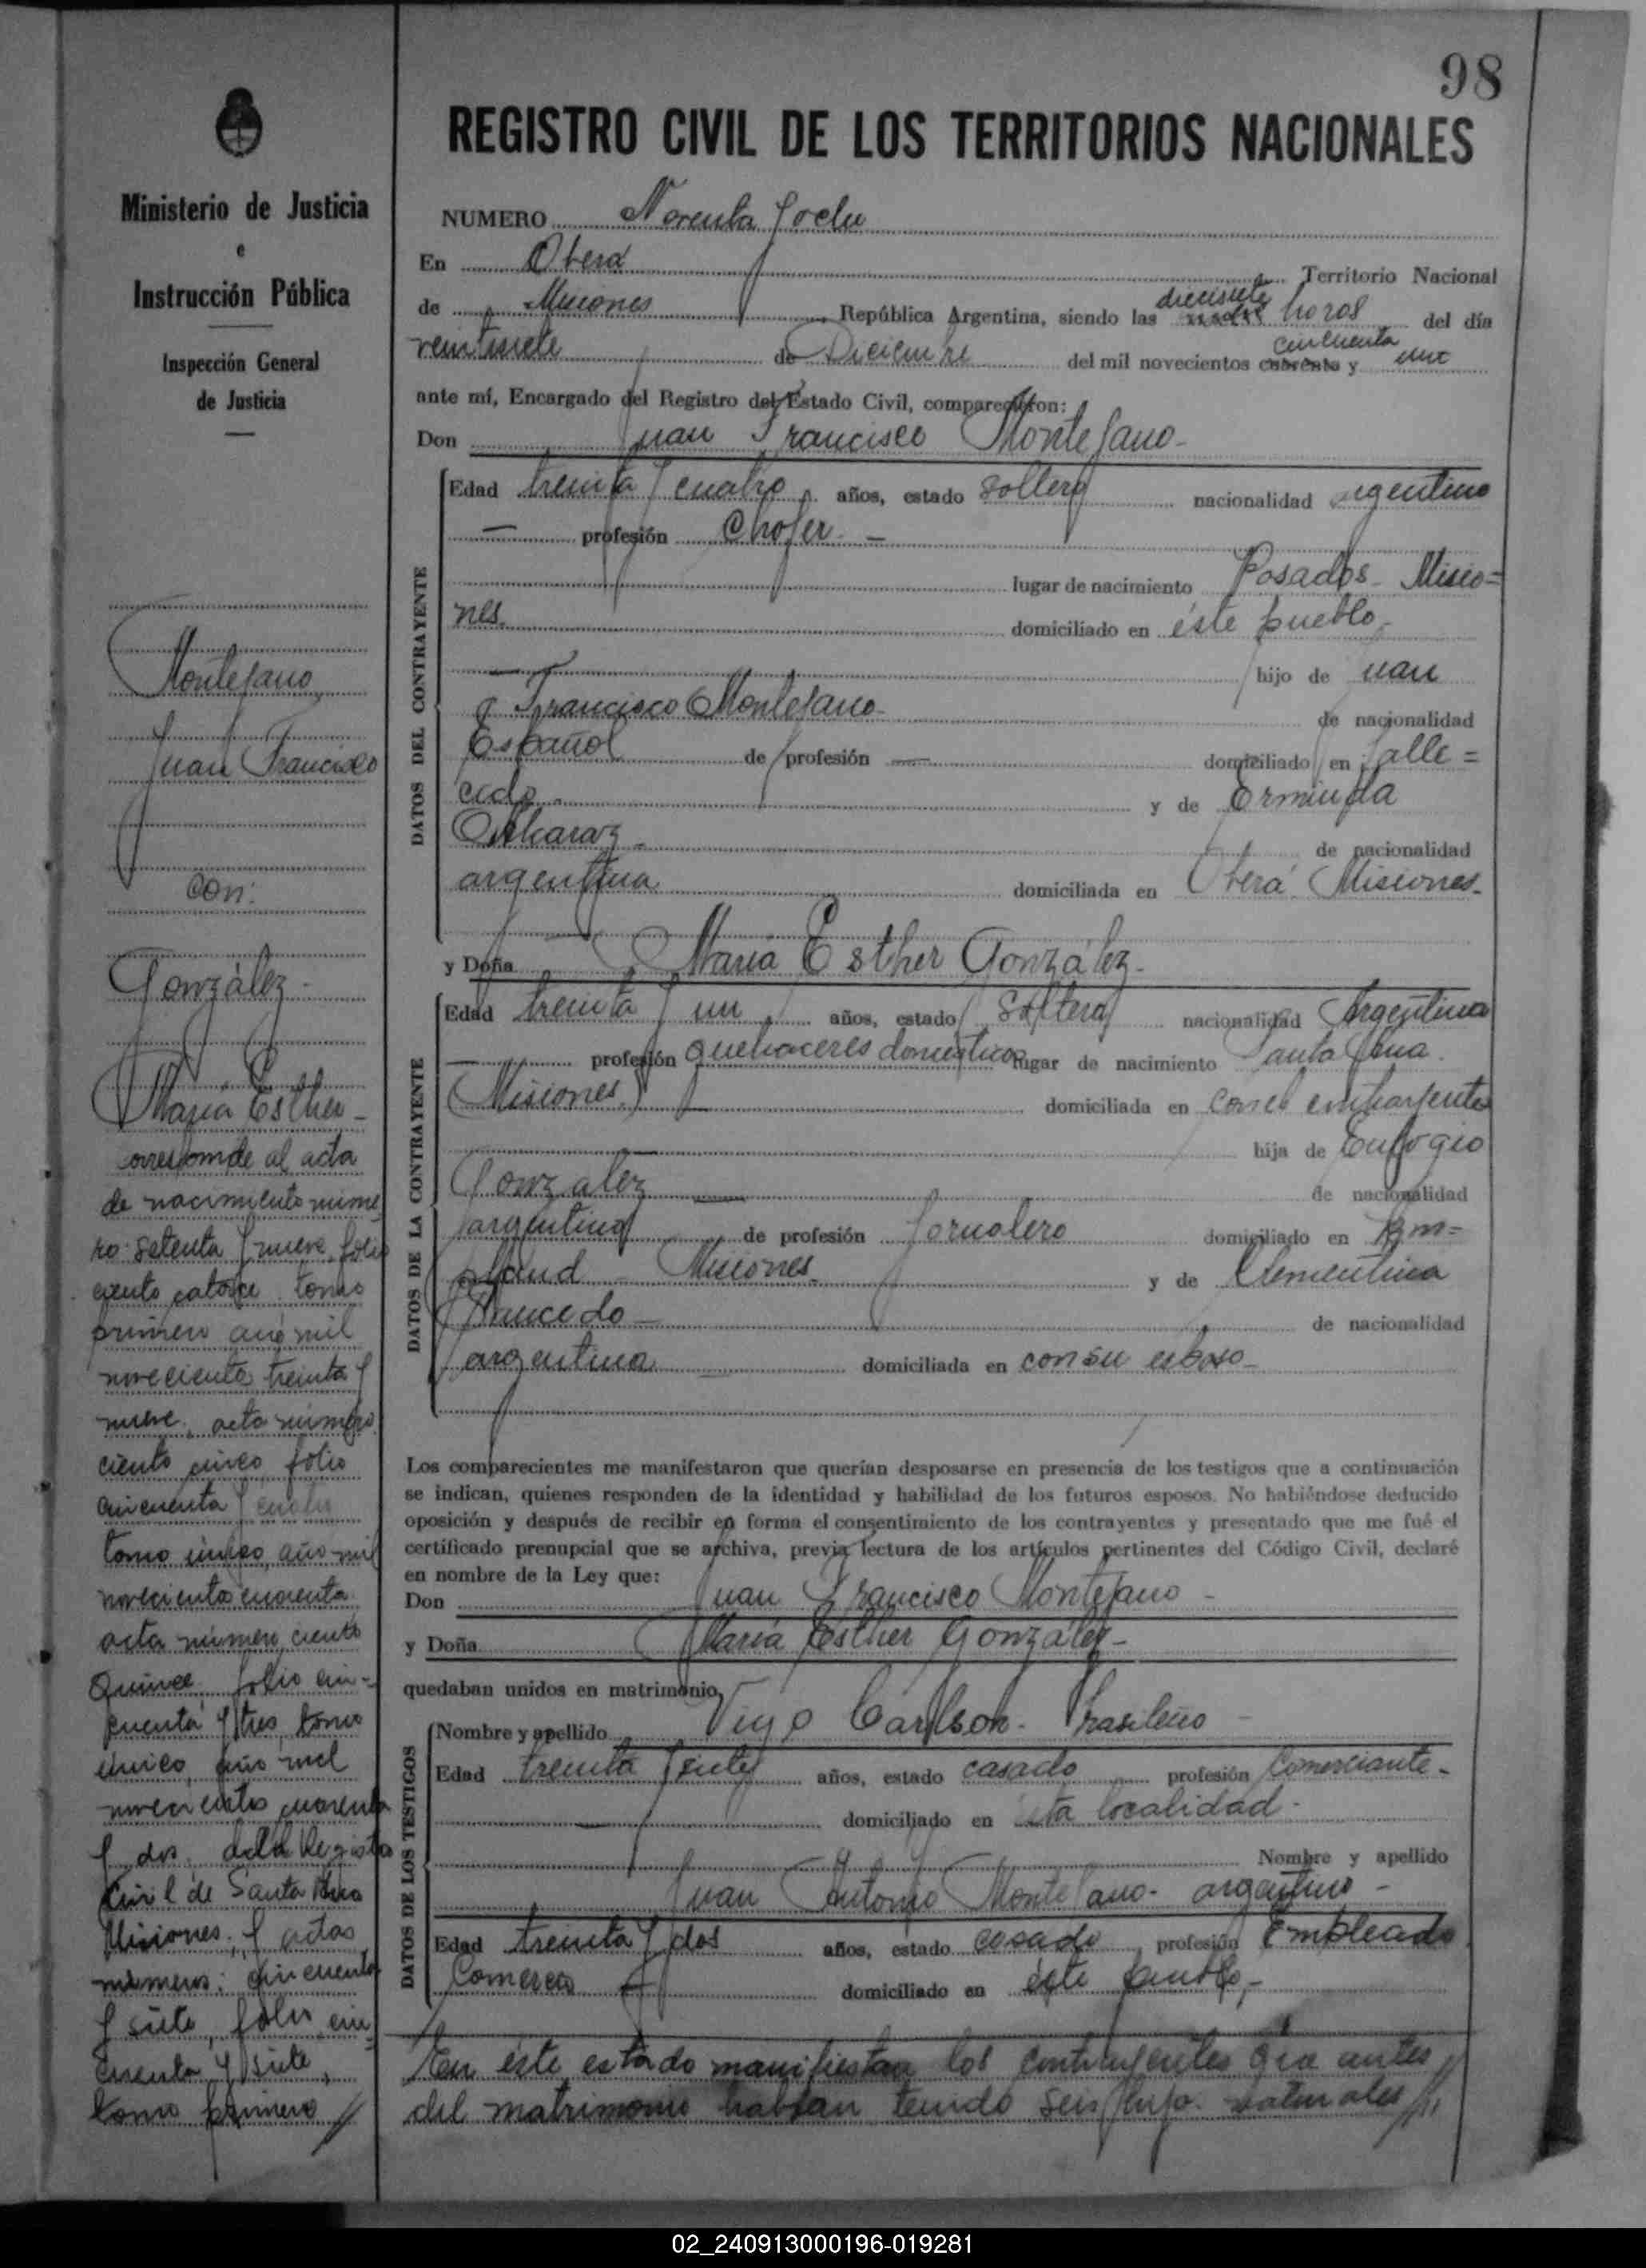 98
REGISTRO CIVIL DE LOS TERRITORIOS NACIONALES
Ministerio de Justicia
e
Instrucción Pública
Inspección General
de Justicia
NUMERO Noventa y ocho
En Oberá Territorio Nacional
de Misiones República Argentina, siendo las diecisiete horas del día
veintisiete de Diciembre del mil novecientos cuarenta y cincuenta uno
ante mí, Encargado del Registro del Estado Civil, comparecieron:
Don Juan Francisco Montejano
Edad treinta y cuatro años, estado soltero nacionalidad argentino
profesión Chofer
lugar de nacimiento Posadas Misio=
nes. domiciliado en éste pueblo
hijo de Juan
Francisco Montejano de nacionalidad
Español de profesión domiciliado en falle=
cido y de Erminda
Alkaraz de nacionalidad
argentina domiciliada en Oberá Misiones
y Doña María Esther González
Edad treinta y un años, estado soltera nacionalidad Argentina
profesión quehaceres domésticos lugar de nacimiento Santa Ana
Misiones domiciliada en con el contrayente
hija de Eulogio
Gonzalez de nacionalidad
argentino de profesión Jornalero domiciliado en
Misiones y de Clementina
de nacionalidad
argentina domiciliada en con su esposo
Los comparecientes me manifestaron que querían desposarse en presencia de los testigos que a continuación
se indican, quienes responden de la identidad y habilidad de los futuros esposos. No habiéndose deducido
oposición y después de recibir en forma el consentimiento de los contrayentes y presentado que me fué el
certificado prenupcial que se archiva, previa lectura de los artículos pertinentes del Código Civil, declaré
en nombre de la Ley que:
Don Juan Francisco Montejano
y Doña María Esther González
quedaban unidos en matrimonio
Nombre y apellido Viggo Carlson. Brasileño
Edad treinta y siete años, estado casado profesión Comerciante
domiciliado en ésta localidad
Nombre y apellido
Juan Antonio Montejano argentino
Edad treinta y dos años, estado casado profesión Empleado
Comercio domiciliado en éste pueblo,
En éste estado manifiestan los contrayentes que antes
del matrimonio habian tenido seis hijo naturales
DATOS DEL CONTRAYENTE
DATOS DE LA CONTRAYENTE
DATOS DE LOS TESTIGOS
Montejano
Juan Francisco
con:
González
María Esther
corresponde al acta
de nacimiento nume
ro setenta y nueve, folio
ciento catorce tomo
primero año mil
novecientos treinta y
nueve, acta número
ciento cinco folio
cincuenta y cuatro
tomo único, año mil
novecientos cuarenta
acta número ciento
quince folio cin-
cuenta y tres, tomo
único, año mil
novecientos cuarenta
y dos, del Registro
Civil de Santa Ana
Misiones, y actas
numeros: cincuenta
y siete, folio cin
cuenta y siete,
tomo primero
02_240913000196-019281